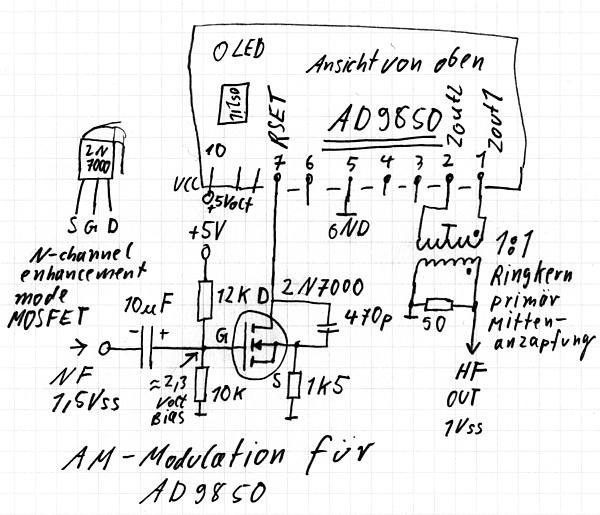 LED
Ansicht von oben
RSET
AD9850
Zout2
Zout1
10
7 6 5 4 3 2 1
VCC
+5Volt
GND
2N
7000
S G D
N-channel
enhancement
mode
MOSFET
+5V
12K
D
2N7000
10µF
- +
G
470p
S
NF
1,5Vss
≈2,3
Volt
Bias
10K
1K5
1:1
Ringkern
primär
Mitten-
anzapfung
50
HF
OUT
1Vss
AM-Modulation für
AD9850